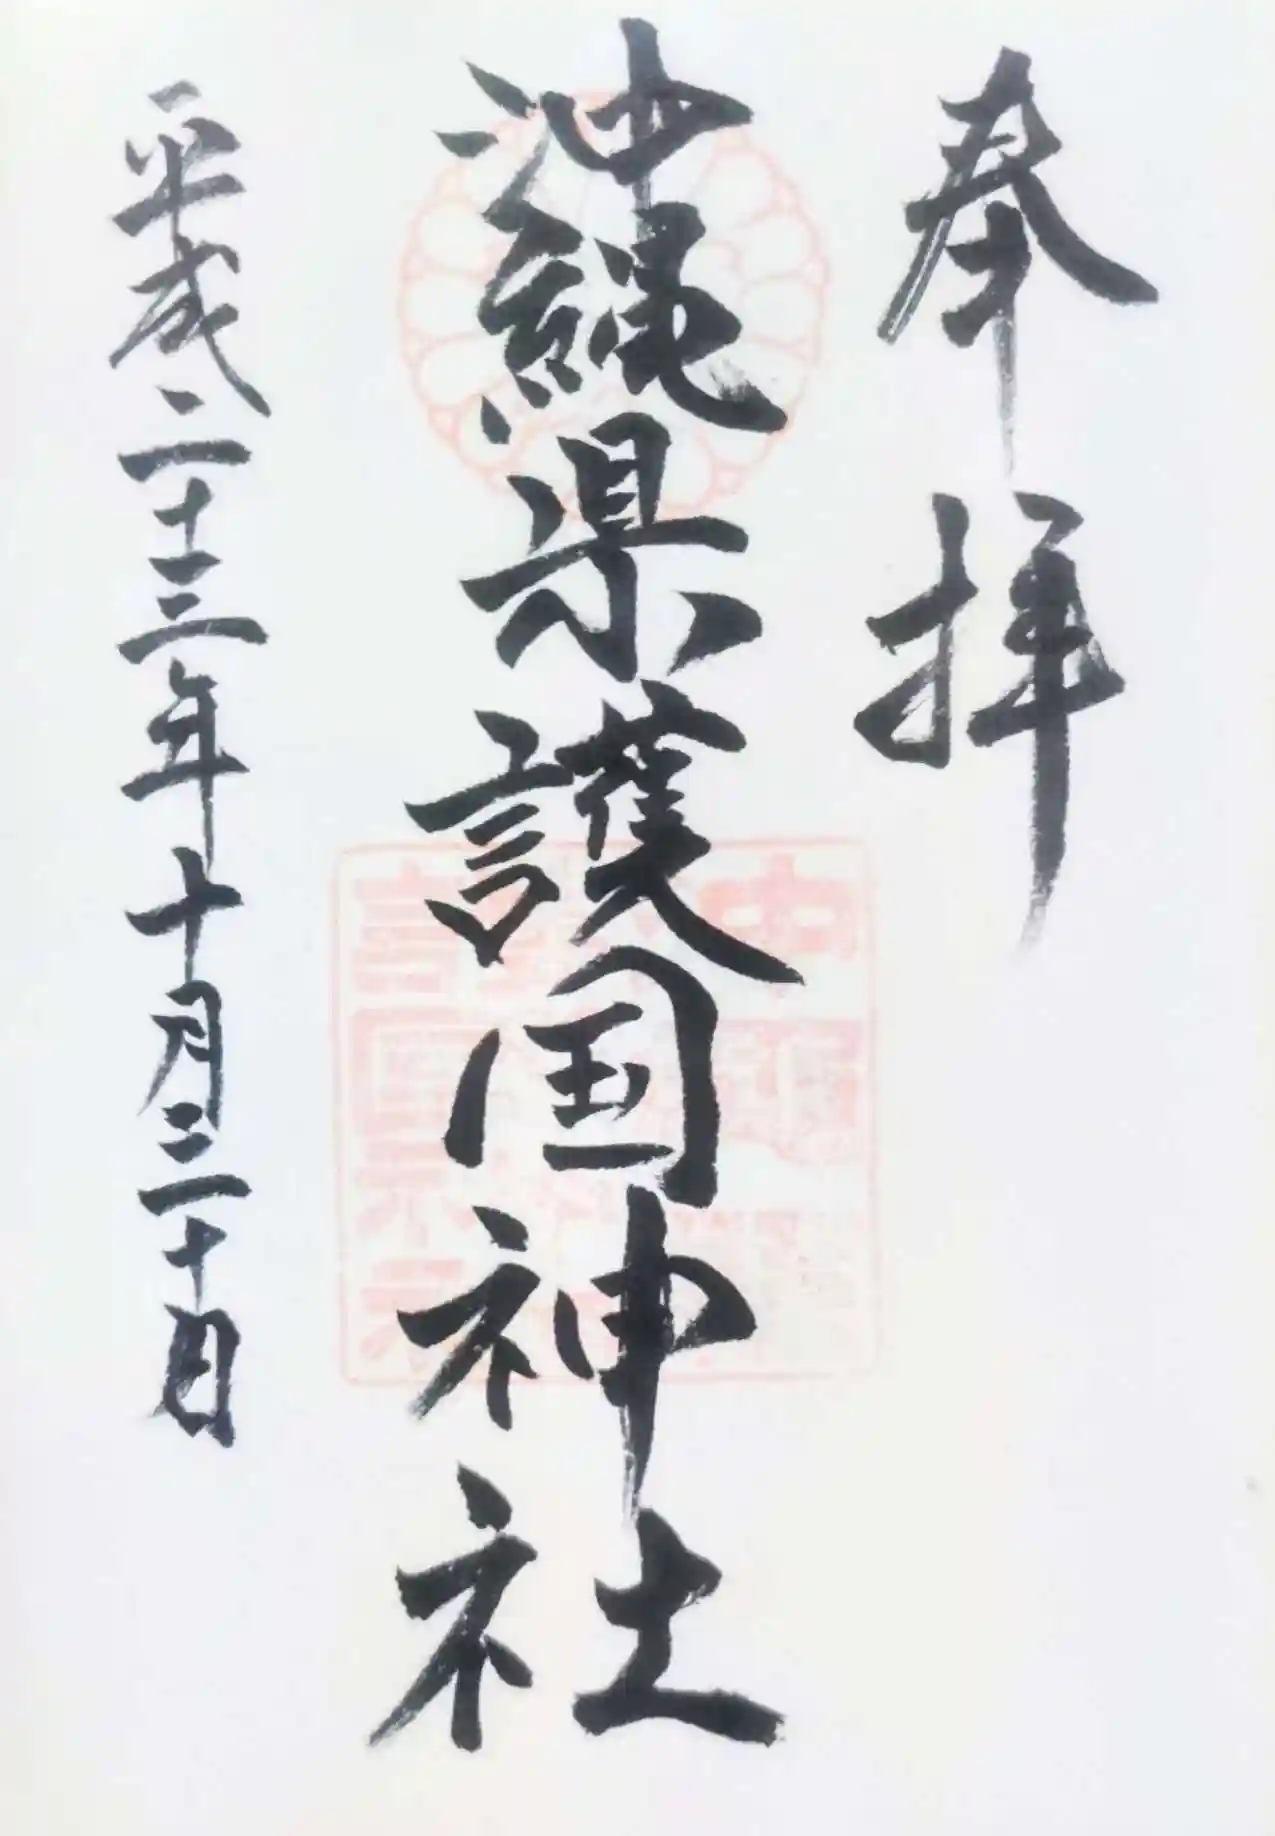 奉拝
沖縄県護国神社
平成二十三年十月三十日